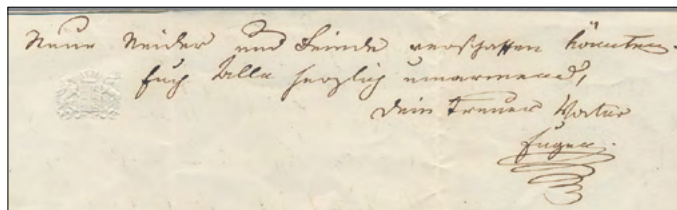 Neue Neider und Feinde verschaffen könnten.
Euch Alle herzlich umarmend,
Dein treuer Vater
Eugen.